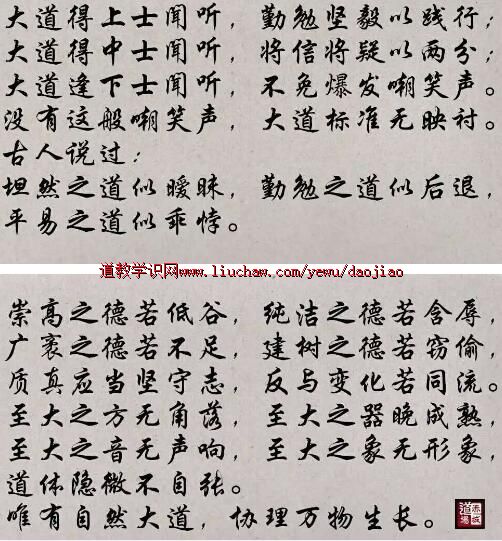 大道得上士闻听，勤勉坚毅以践行，
大道得中士闻听，将信将疑以两分，
大道逢下士闻听，不免爆发嘲笑声。
没有这般嘲笑声，大道标准无映衬。
古人说过：
坦然之道似暧昧，勤勉之道似后退，
平易之道似乖悖。
道教学识网www.liuchaw.com/yewu/daojiao
崇高之德若低谷，纯洁之德若含辱，
广袤之德若不足，建树之德若窃偷，
质真应当坚守志，反与变化若同流。
至大之方无角落，至大之器晚成熟，
至大之音无声响，至大之象无形象，
道体隐微不自张。
唯有自然大道，协理万物生长。